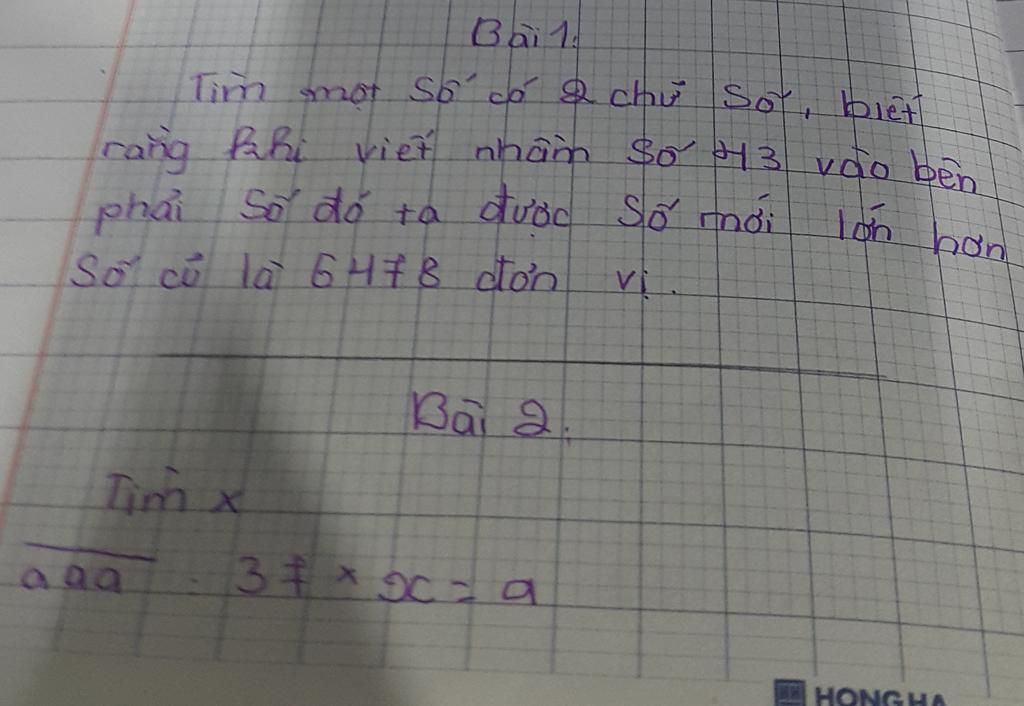 Bài 1.
Tìm một số có 2 chữ số, biết
rằng khi viết nhầm số 43 vào bên
phải số đó ta được số mới lớn hơn
số cũ là 6478 đơn vị.
Bài 2.
Tìm x
aaa : 37 × x = a
HONG HA